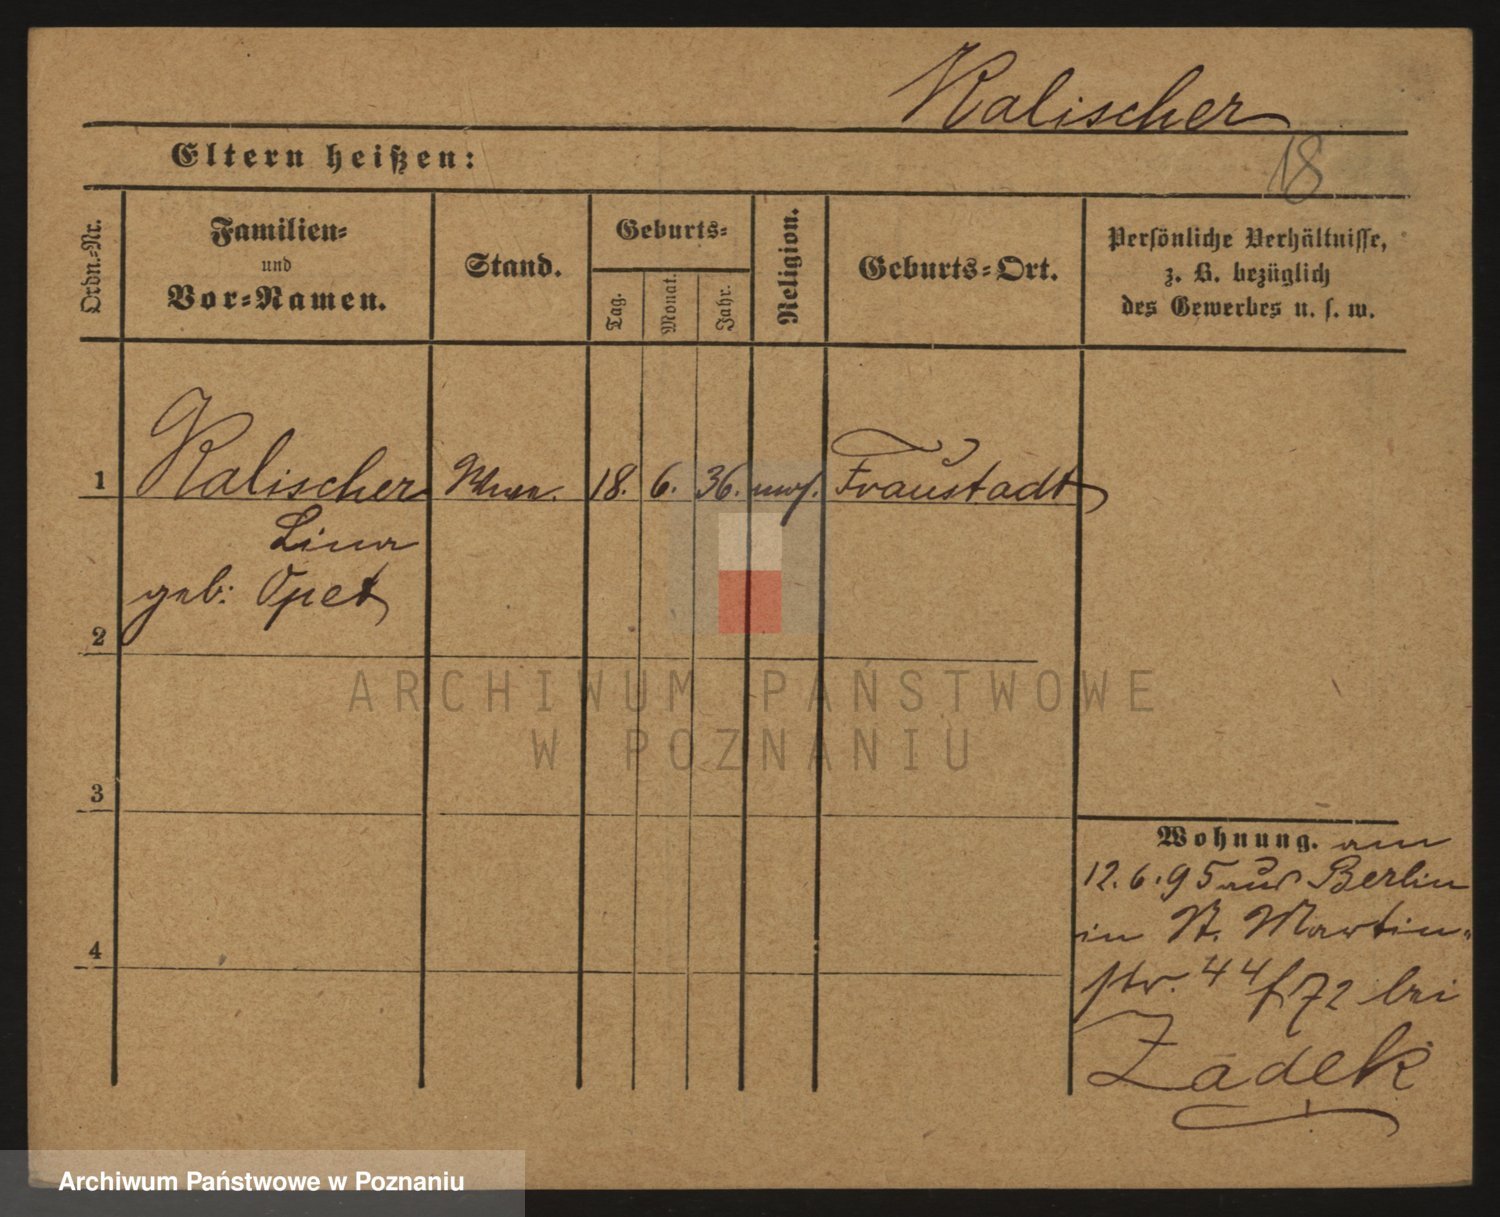 Kalischer
18
Eltern heißen:
Ordn.-Nr.
Familien-
und
Vor-Namen.
Stand.
Geburts-
Tag.
Monat.
Jahr.
Religion.
Geburts-Ort.
Persönliche Verhältnisse,
z. B. bezüglich
des Gewerbes u. s. w.
1 Kalischer 18. 6. 36. mos. Fraustadt
Lina
geb: Opet
2
3
4
ARCHIWUM PAŃSTWOWE
W POZNANIU
Wohnung. am
12.6.95 aus Berlin
in St. Martin-
str. 44 72 bei
Zadek
Archiwum Państwowe w Poznaniu